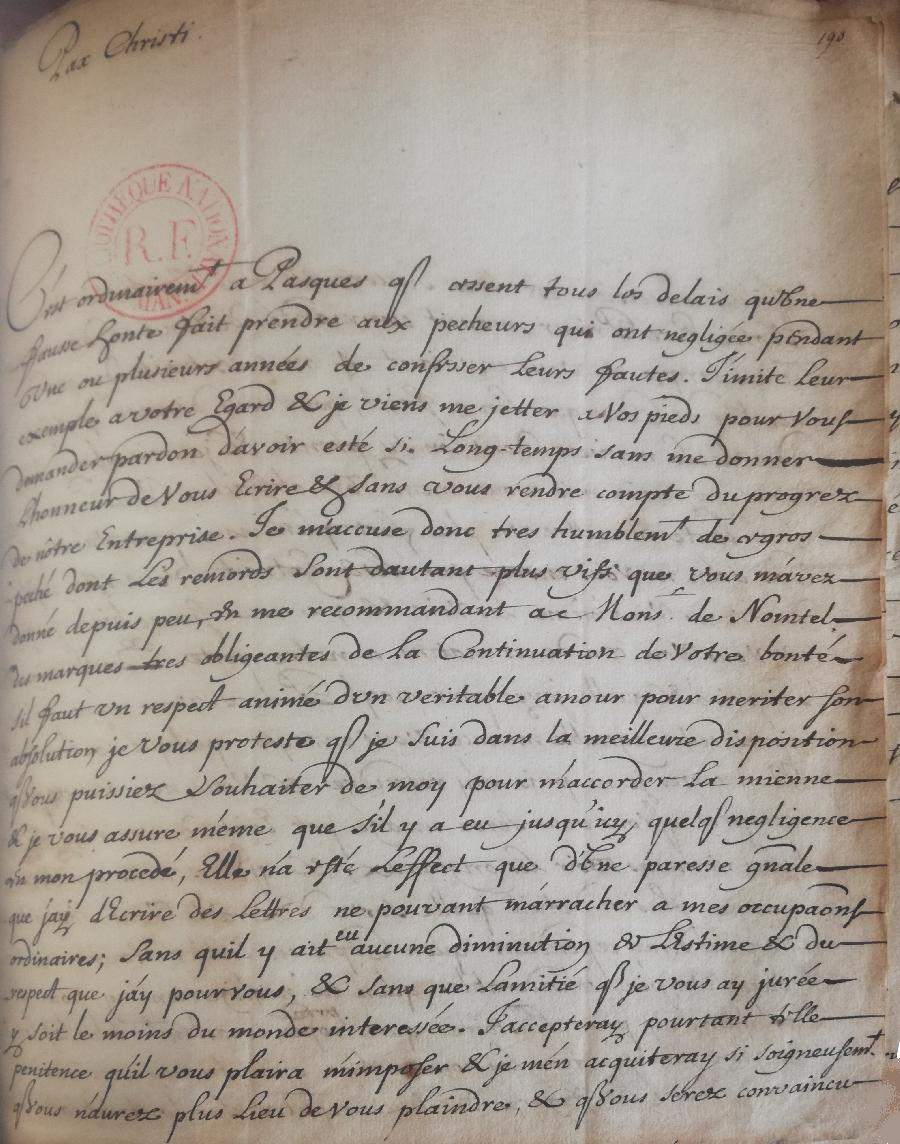 Pax Christi.
190
BIBLIOTHEQUE NATIONALE
R.F.
C'est ordinairemt a Pasques qs cessent tous les delais qu'Vne
fausse honte fait prendre aux pecheurs qui ont negligée pendant
Vne ou plusieurs années de confesser leurs fautes. J'imite leur
exemple a votre Egard & je viens me jetter a Vos pieds pour Vous
demander pardon d'avoir esté si Long-temps sans me donner
L'honneur de Vous Ecrire & sans vous rendre compte du progrez
de nôtre Entreprise. Je m'accuse donc tres humblemt de ce gros
peché dont Les remords sont d'autant plus vifs que vous m'avez
donné depuis peu, en me recommandant a Monsr. de Nointel
des marques tres obligeantes de la Continuation de Votre bonté
s'il faut vn respect animé d'vn veritable amour pour meriter son
absolution je vous proteste qs je suis dans la meilleure disposition
qs Vous puissiez Souhaiter de moy pour m'accorder la mienne
& je vous assure méme que s'il y a eu jusqu'icy quelqs negligence
en mon procedé, Elle n'a esté L'effect que d'Vne paresse gnãle
que j'aÿ d'Ecrire des lettres ne pouvant m'arracher a mes occupaõns
ordinaires; Sans qu'il y ait eu aucune diminution de L'Estime & du
respect que j'áy pour vous, & sans que L'amitié qs je vous ay jurée
y soit le moins du monde interessée. J'accepteray pourtant telle
penitence qu'il vous plaira m'imposer & je m'en acquiteray si soigneusemt.
qs Vous n'aurez plus Lieu de Vous plaindre, & qs Vous serez convaincu